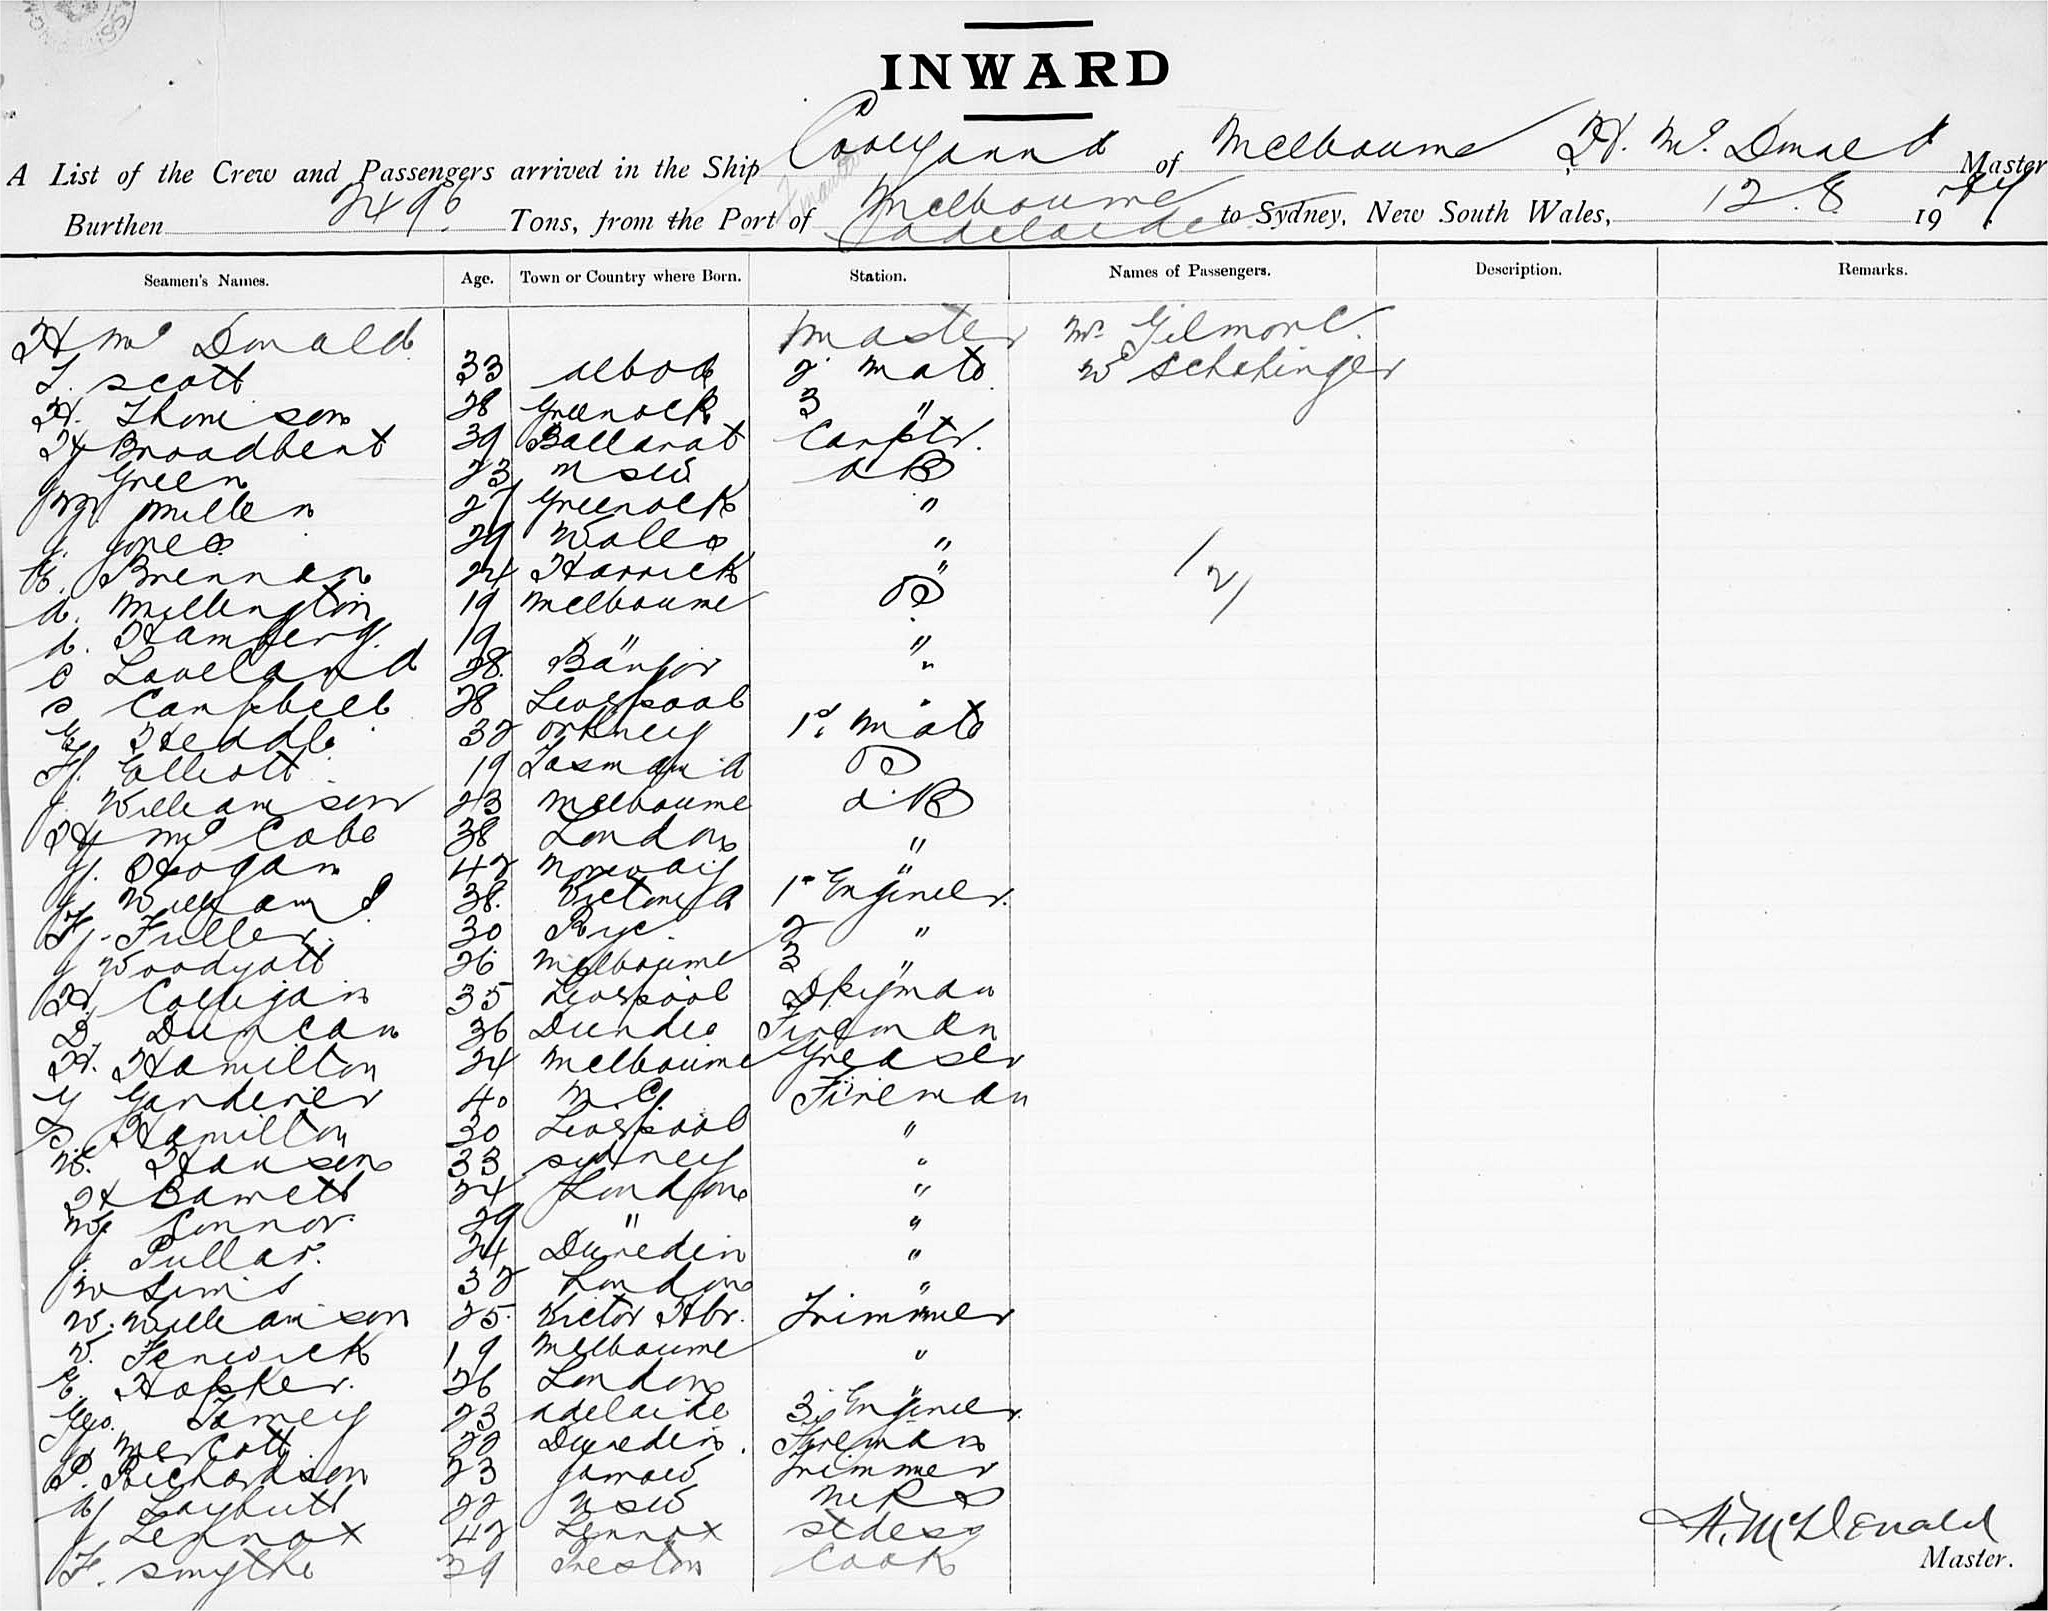 INWARD
A List of the Crew and Passengers arrived in the Ship Cooeyanna of Melbourne H. Mc. Donald Master
Burthen 2496 Tons, from the Port of Melbourne Adelaide to Sydney, New South Wales, 12.8. 19
Seamen's Names. Age. Town or Country where Born. Station. Names of Passengers. Description. Remarks.
H Mc Donald Master Mr Gilmore
T. Scott 33 2 Mate W Schahinger
H. Thomson 28 Greenock 3 "
H Broadbent 39 Ballarat Carptr.
J Green 23 NSW AB
Wm Millen 27 Greenock "
J. Jones 29 Wales "
E. Brennan 24 Harrick "
A. Millington 19 Melbourne OS
A. Hamberg 19 " "
C Loveland 28. Bangor "
D Campbell 28 Liverpool "
E Headle 32 Orkney 1st. Mate
H. Elliott 19 Tasmania OS
J. Williamson 23 Melbourne A.B
H Mc Cabe 38 London "
J. Hogan 42 Norway "
J Williams 38. Victoria 1st Engineer.
H. Fuller. 30 Rye 2 "
J Woodyatt 26 Melbourne 3 "
H. Colligan 35 Liverpool Dkyman
D. Duncan 36 Dundee Fireman
H. Hamilton 24 Melbourne Greaser
J Gardiner 40 N.C. Fireman
D. Hamilton 30 Liverpool "
W. Hansen 33 Sydney "
H Barrett 24 London "
Wm Connor. 29 " "
J. Pullar. 24 Dunedin "
W Sims 32 London "
W. Williamson 25. Victor Hbr. Trimmer
W. Fenwick 19 Melbourne "
E. Hopker. 26 London "
Geo. Tamey 23 Adelaide 3 Engineer
J. Mercott 22 Dunedin. Fireman
P. Richardson 23 Jarrow Trimmer
W Laybutt 22 NSW MRS
J Lennox 42 Lennox
F. Smythe 39 Preston Cook
1/2/
H. McDonald
Master.